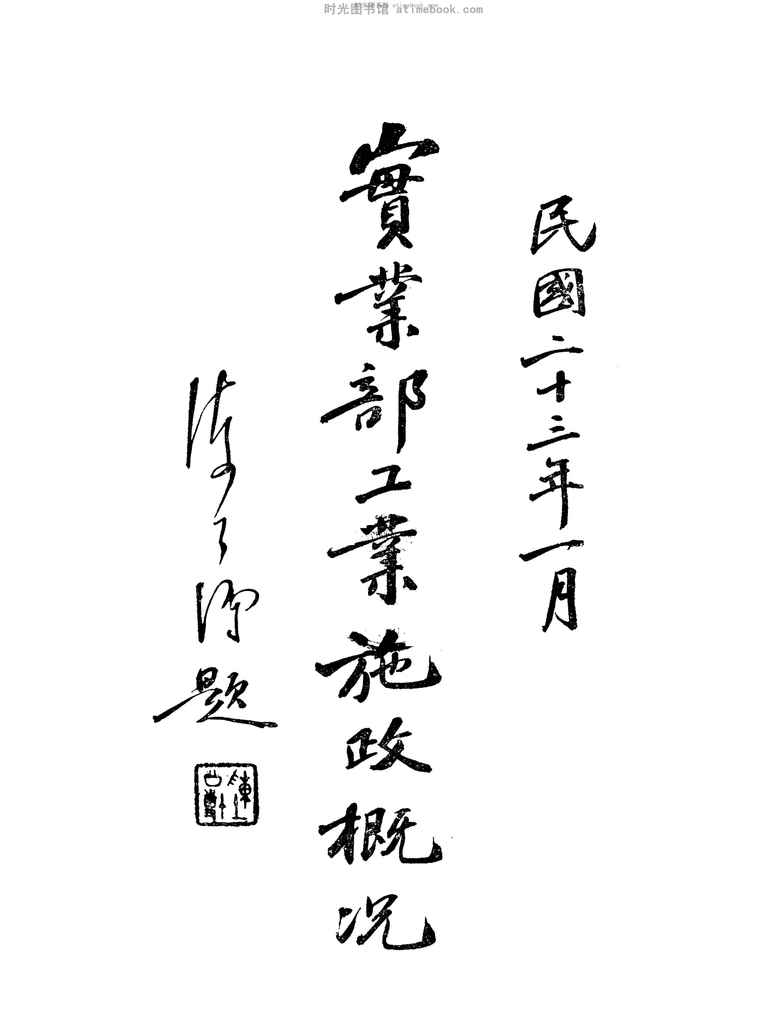 时光图书馆 atimebook.com
民國二十三年一月
實業部工業施政概况
題